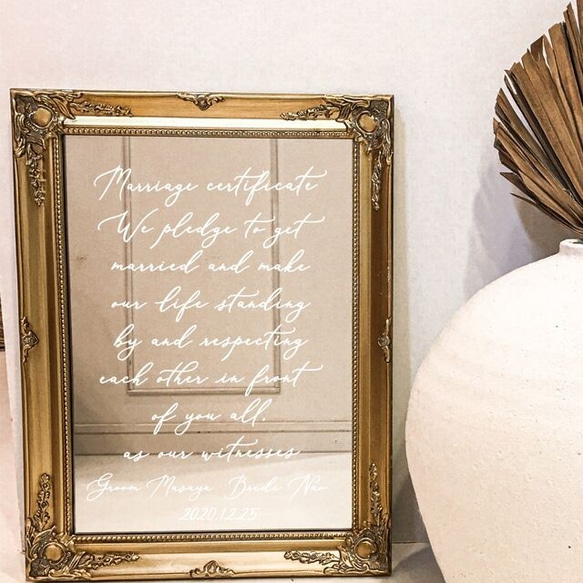 Marriage certificate
We pledge to get
married and make
our life standing
by and respecting
each other in front
of you all.
as our witnesses
Groom Masaya Bride Nao
2020.12.25